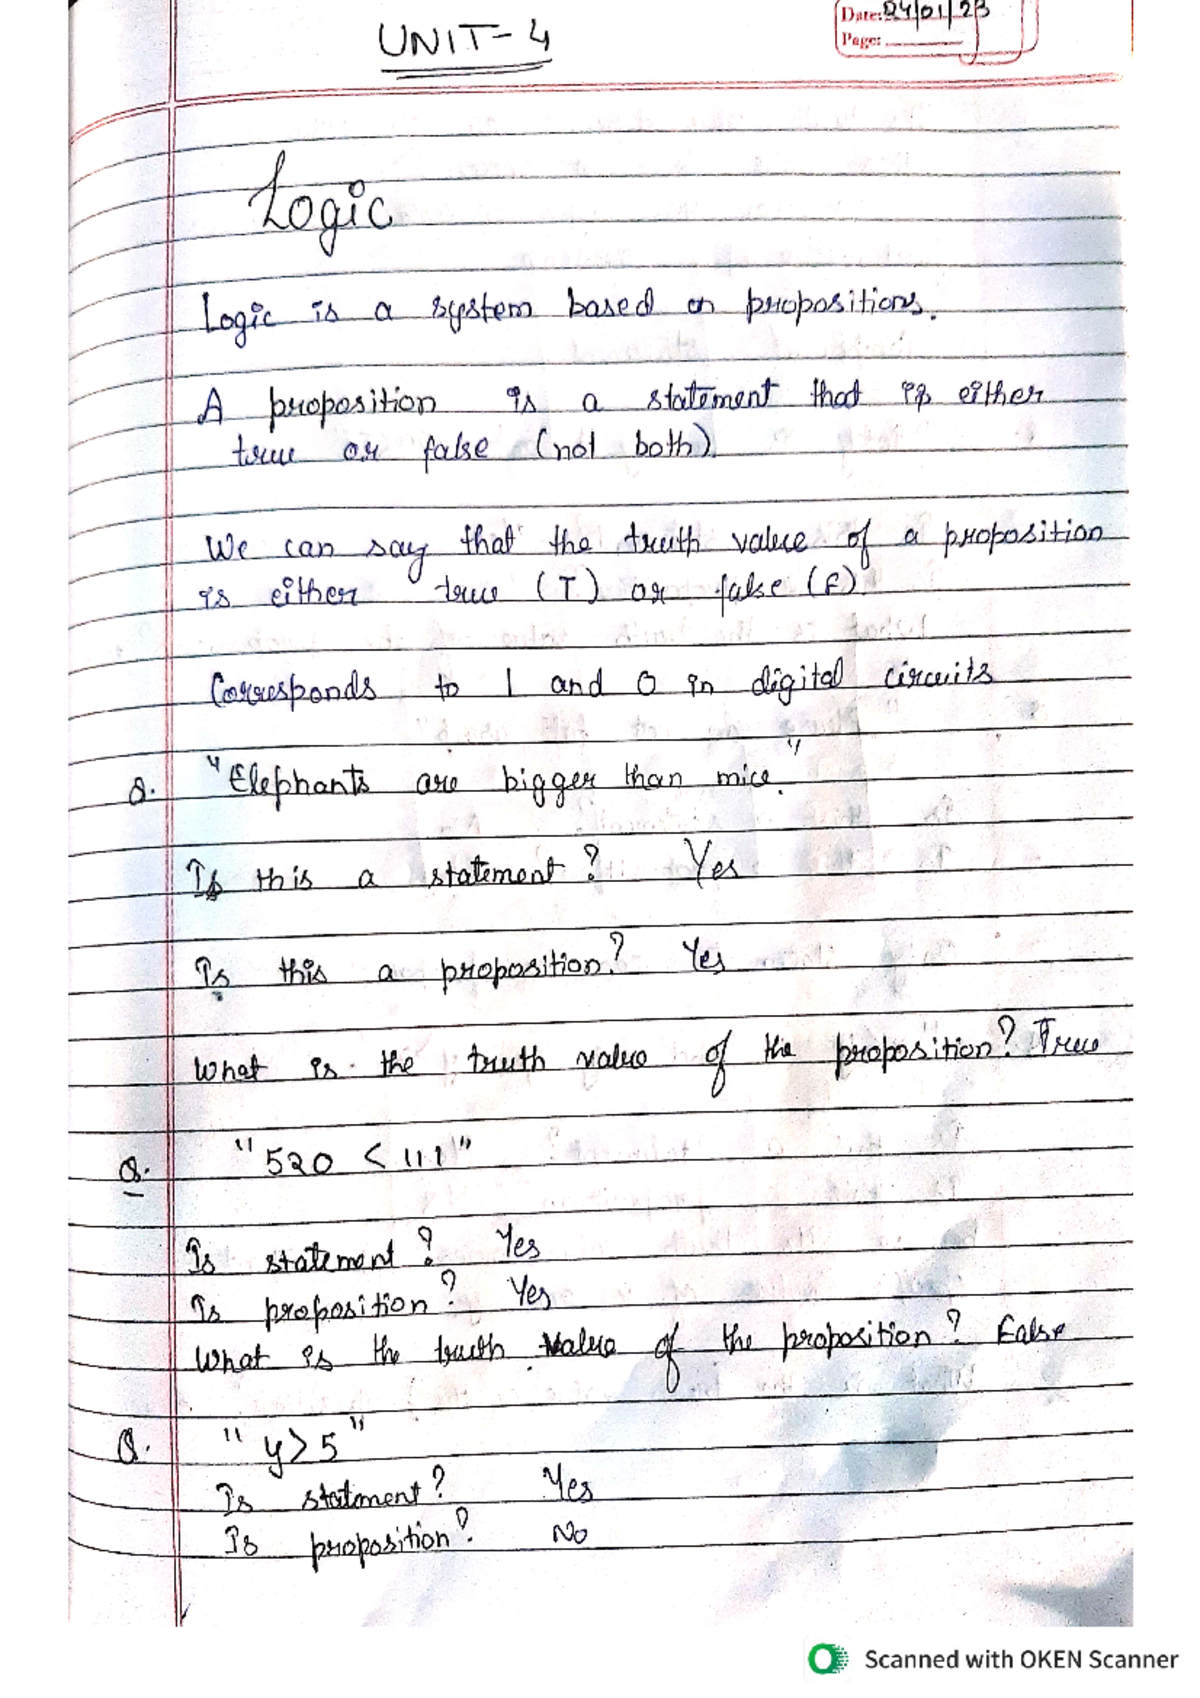 UNIT-4
Date: 24/01/23
Page:
Logic
Logic is a system based on propositions.
A proposition is a statement that is either
true or false (not both)
We can say that the truth value of a proposition
is either true (T) or false (F)
Corresponds to 1 and 0 in digital circuits
Q. "Elephants are bigger than mice."
Is this a statement? Yes
Is this a proposition? Yes
What is the truth value of the proposition? True
Q. "520 < 111"
Is statement? Yes
Is proposition? Yes
What is the truth value of the proposition? False
Q. "y>5"
Is statement? Yes
Is proposition? No
Scanned with OKEN Scanner